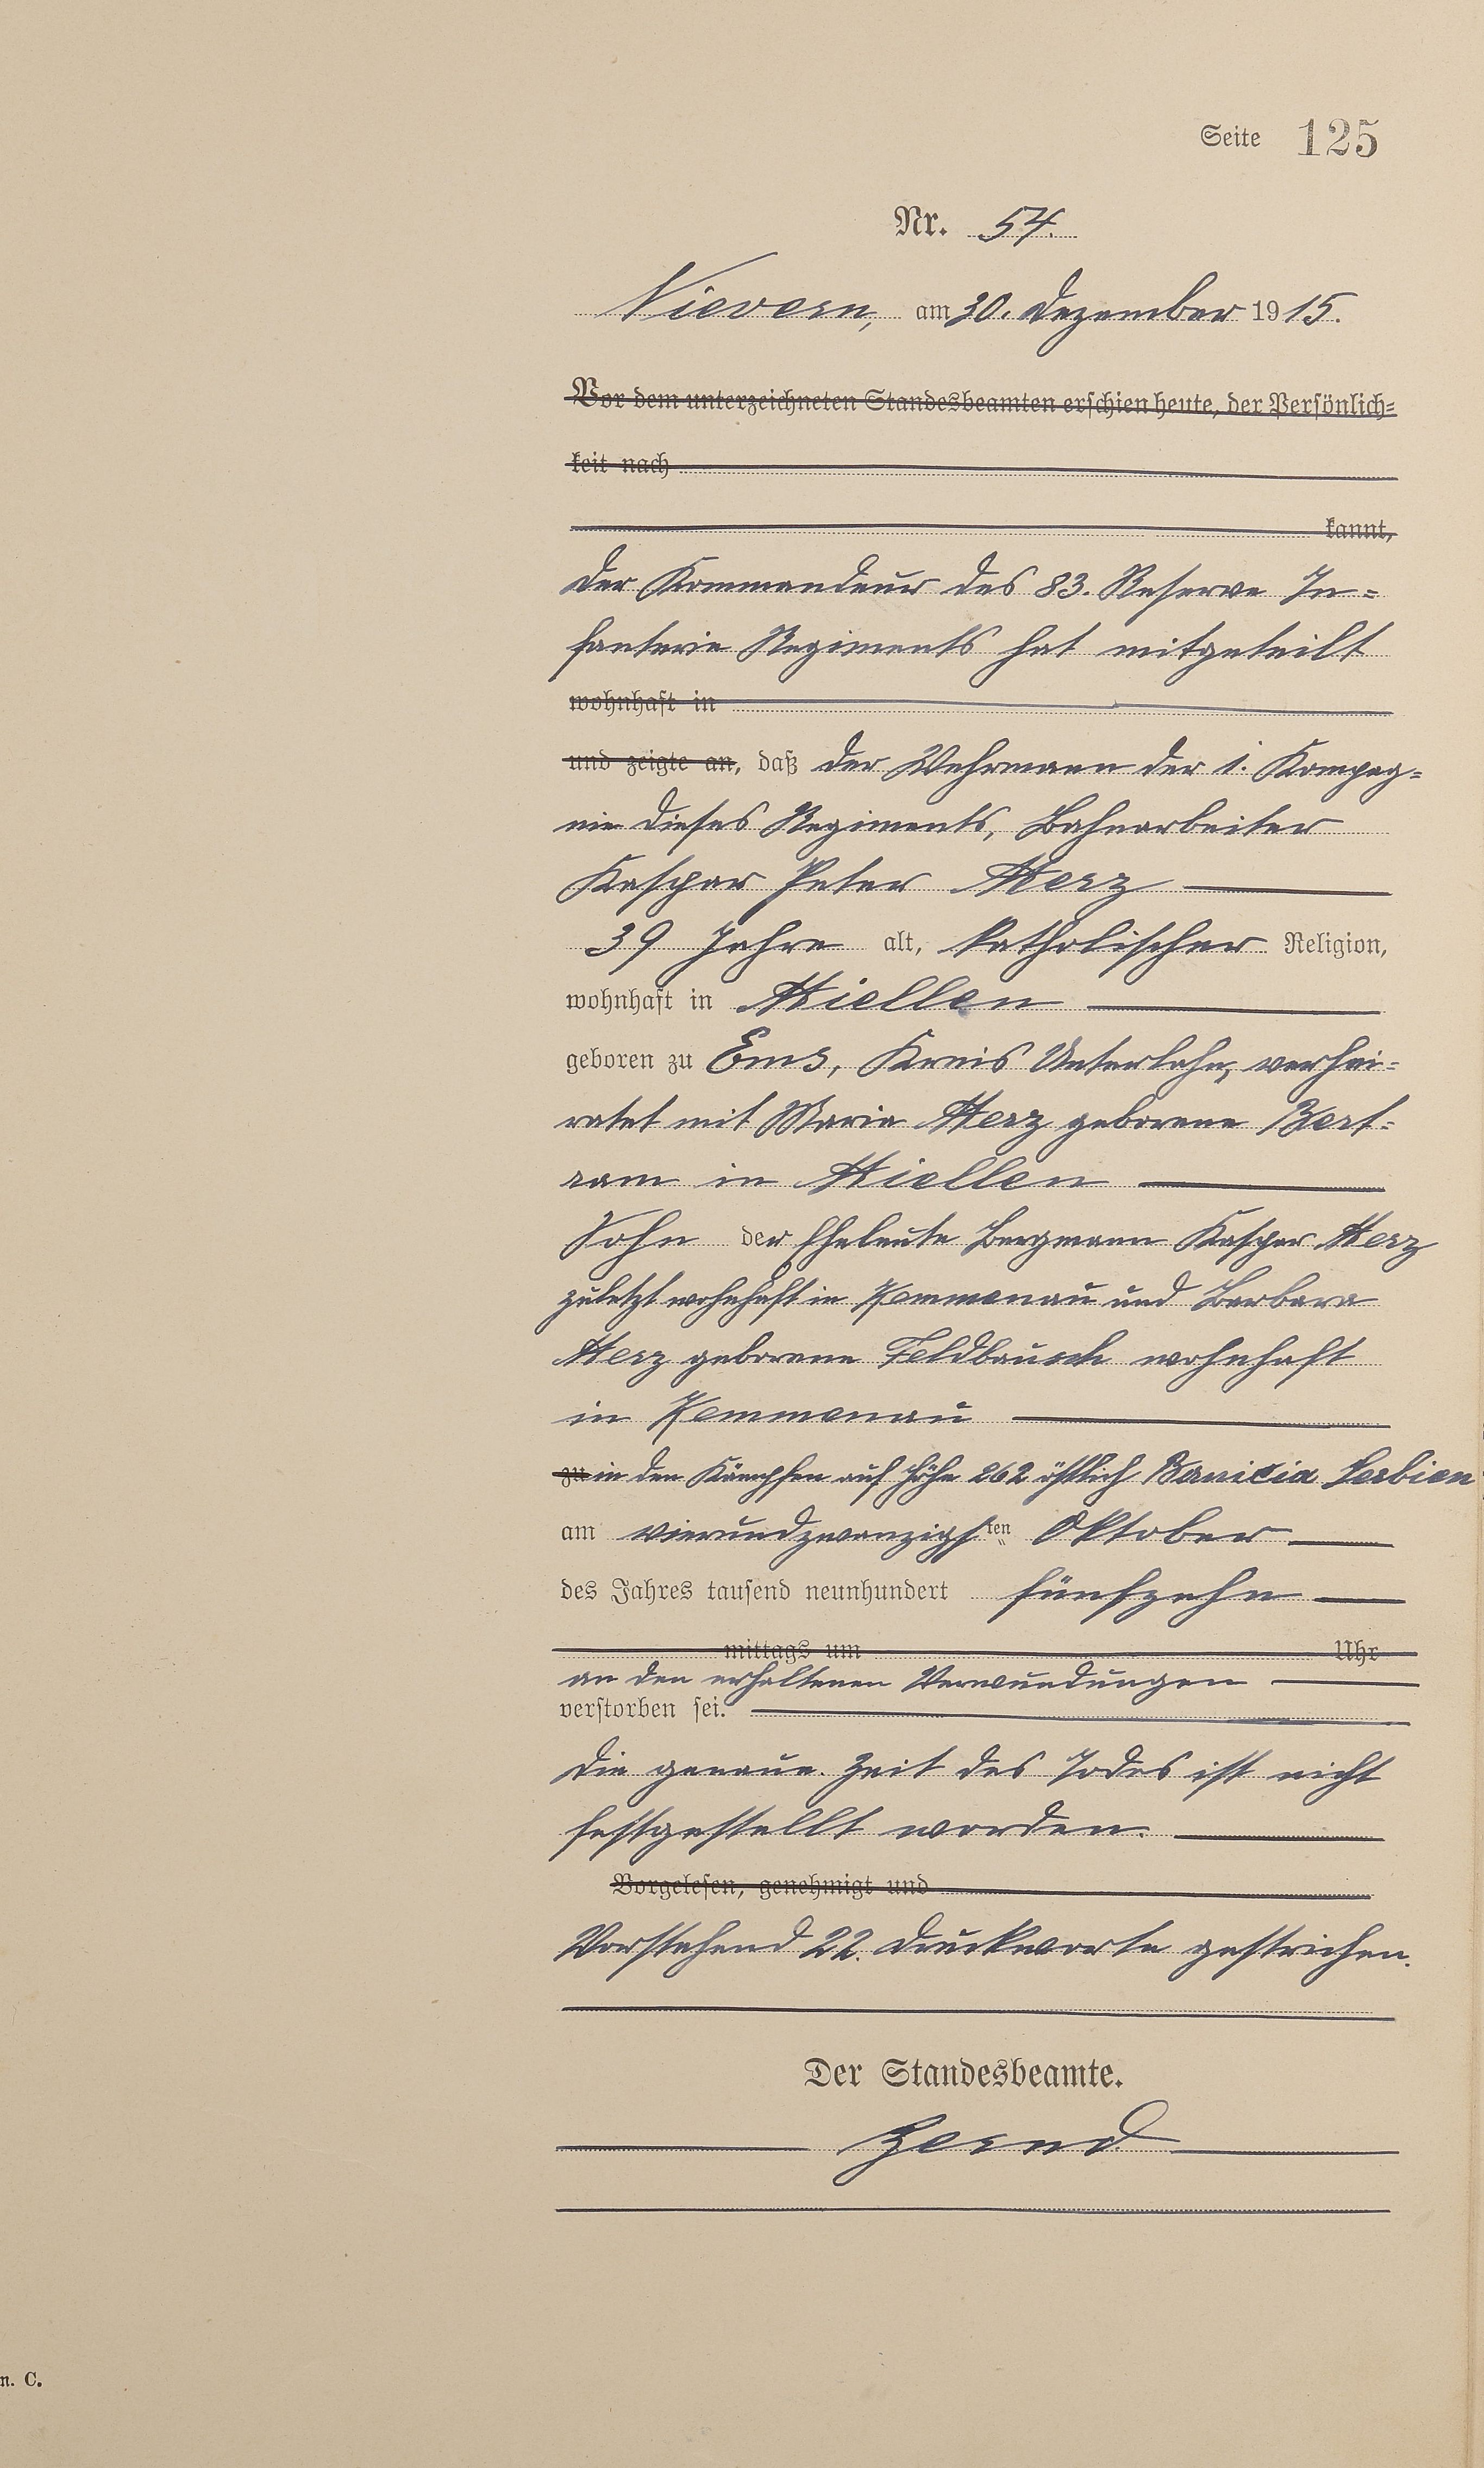 Seite 125
Nr. 54.
Nievern, am 30. Dezember 1915.
Vor dem unterzeichneten Standesbeamten erschien heute, der Persönlich-
keit nach
kannt,
Der Kommandeur des 83. Reserve In-
fanterie Regiments hat mitgeteilt
wohnhaft in
und zeigte an, daß der Wehrmann der 1. Kompag-
nie dieses Regiments, Bahnarbeiter
Kaspar Peter Herz
39 Jahre alt, katholischer Religion,
wohnhaft in Miellen
geboren zu Ems, Kreis Unterlahn, verhei-
ratet mit Maria Herz geborene Bert-
ram in Miellen
Sohn der Eheleute Bergmann Kaspar Herz
zuletzt wohnhaft in Kemmenau und Barbara
Herz geborene Feldbausch wohnhaft
in Kemmenau
zu in den Kämpfen auf Höhe 262 östlich Serbien
am vierundzwanzigsten Oktober
des Jahres tausend neunhundert fünfzehn
mittags um Uhr
an den erhaltenen Verwundungen
verstorben sei.
Die genaue Zeit des Todes ist nicht
festgestellt worden.
Vorgelesen, genehmigt und
Vorstehend 22. Druckworte gestrichen.
Der Standesbeamte.
n. C.